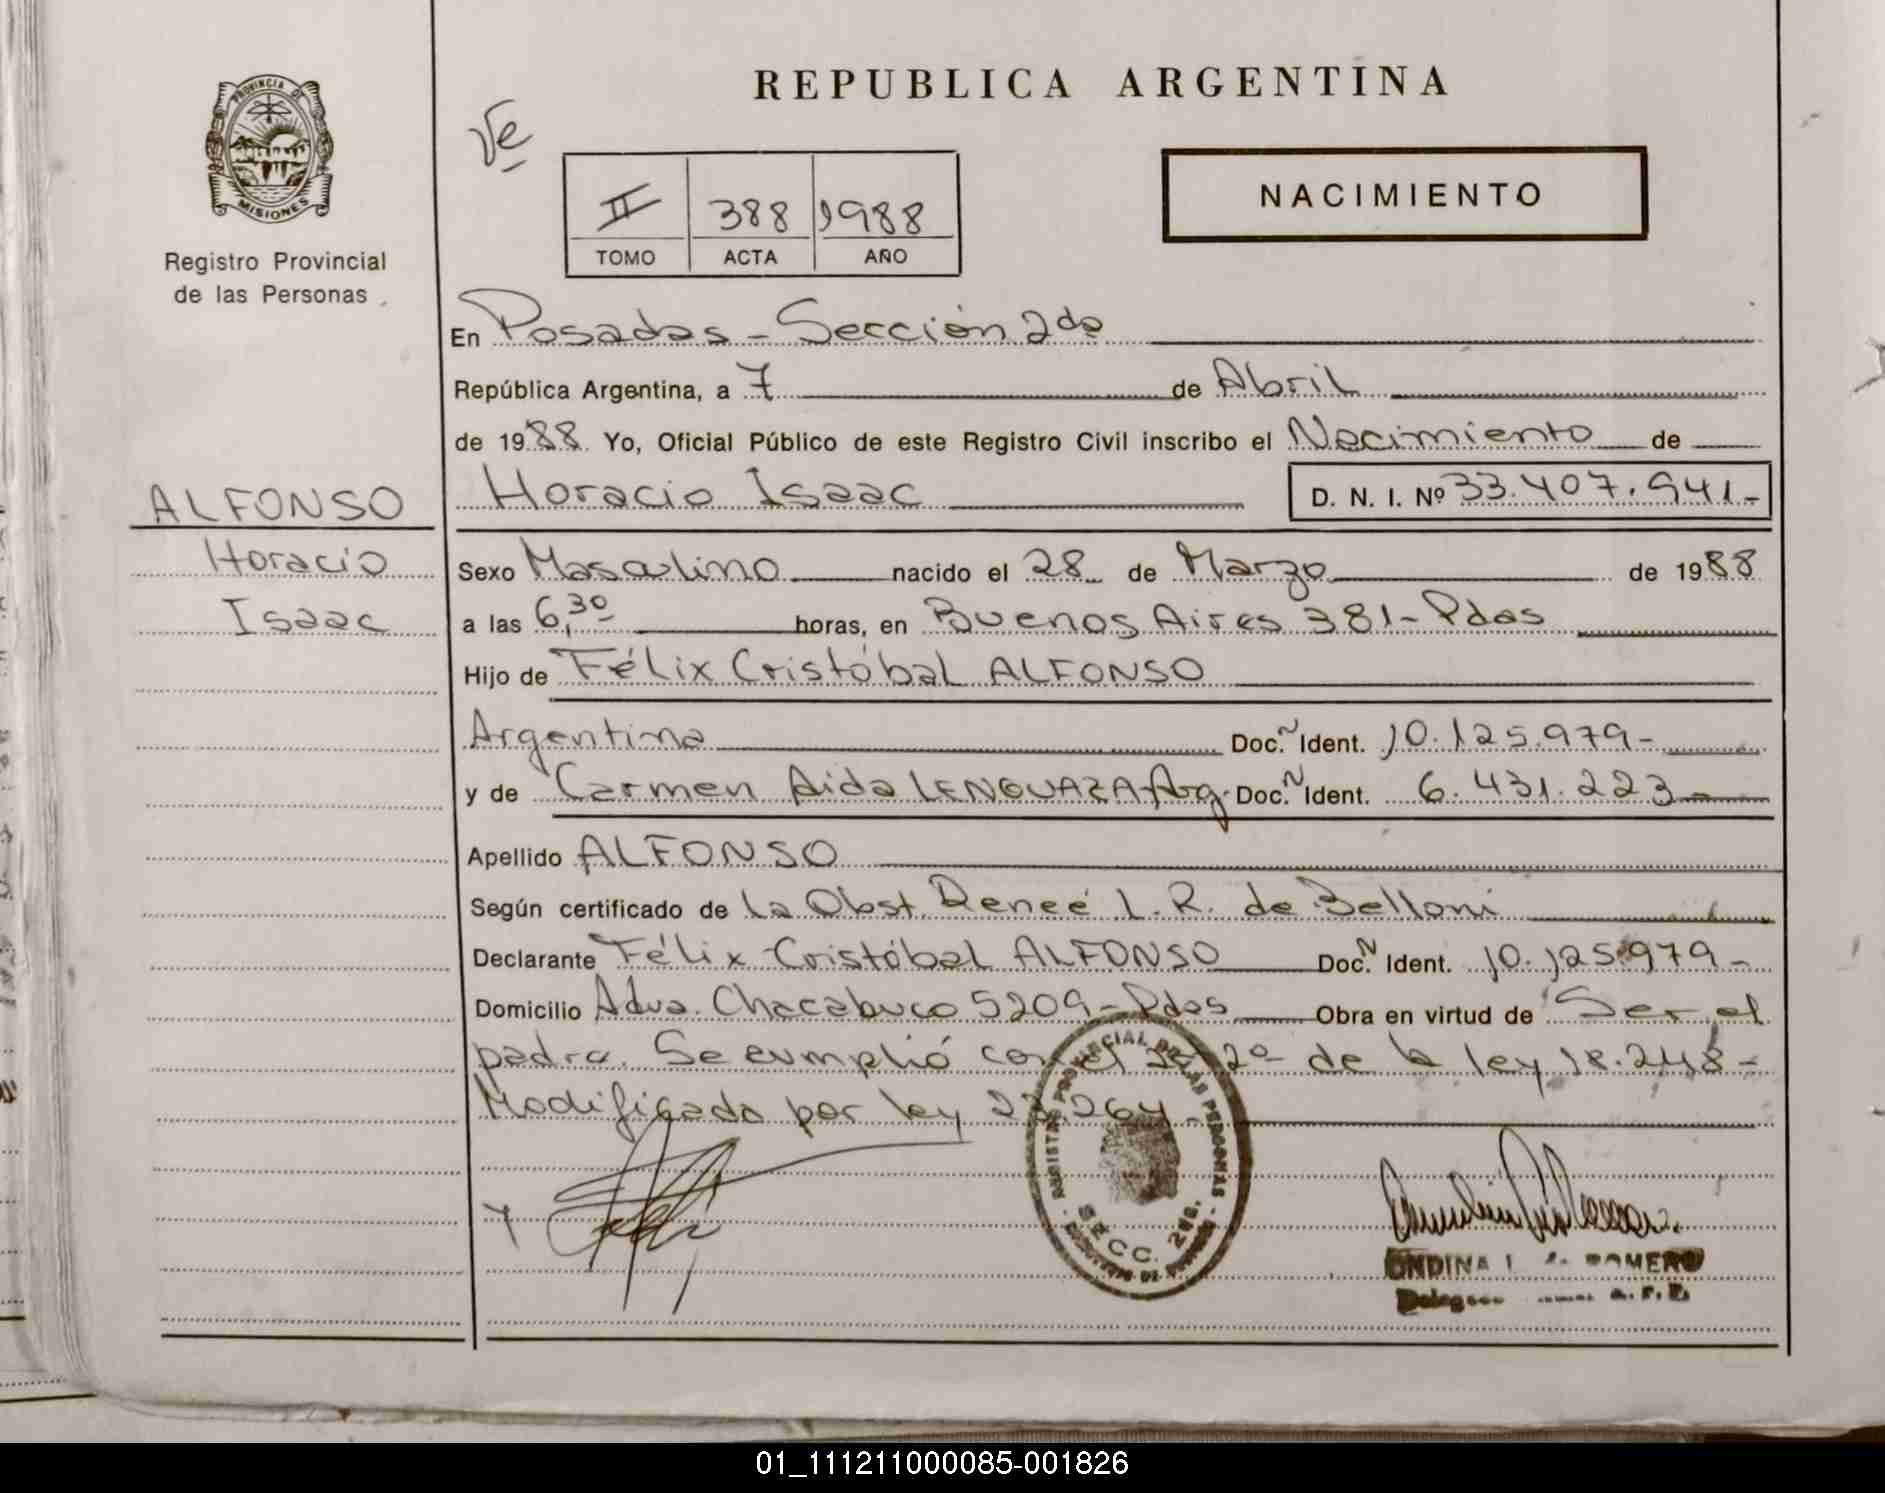 REPUBLICA ARGENTINA
PROVINCIA DE
MISIONES
Registro Provincial
de las Personas
Ve
II 388 1988
TOMO ACTA AÑO
NACIMIENTO
En Posadas - Sección 2da
República Argentina, a 7 de Abril
de 1988 Yo, Oficial Público de este Registro Civil inscribo el Nacimiento de
ALFONSO
Horacio
Isaac
Horacio Isaac D. N. I. Nº 33.407.941-
Sexo Masculino nacido el 28 de Marzo de 1988
a las 6,30 horas, en Buenos Aires 381- Pdas
Hijo de Félix Cristóbal ALFONSO
Argentina Doc. N Ident. 10.125.979-
y de Carmen Aida LENGUAZA Arg. Doc. N Ident. 6.431.223
Apellido ALFONSO
Según certificado de la Obst. Reneé L. R. de Belloni
Declarante Félix Cristóbal ALFONSO Doc. N Ident. 10.125.979-
Domicilio Advo. Chacabuco 5209 - Pdas Obra en virtud de Ser el
padre. Se cumplió con el 2º de la ley 18.248-
Modificado por ley 23.264
REGISTRO PROVINCIAL DE LAS PERSONAS
SECC. 2da.
ONDINA ROMERO
01_111211000085-001826